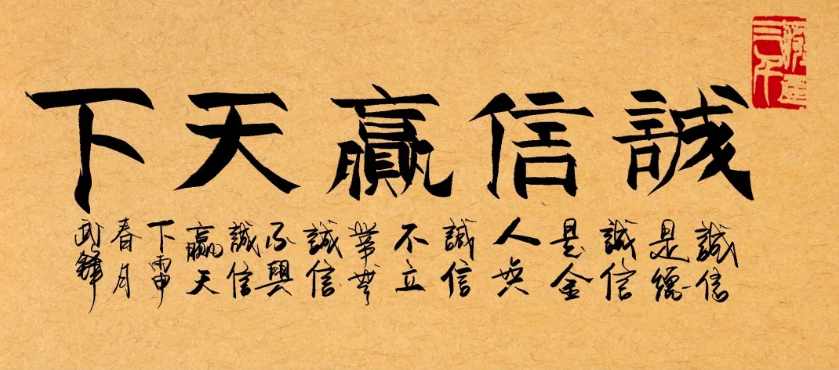 誠信贏天下
誠信
是德
誠信
是金
人無
誠信
不立
業無
誠信
不興
誠信
贏天
下丙申
春月